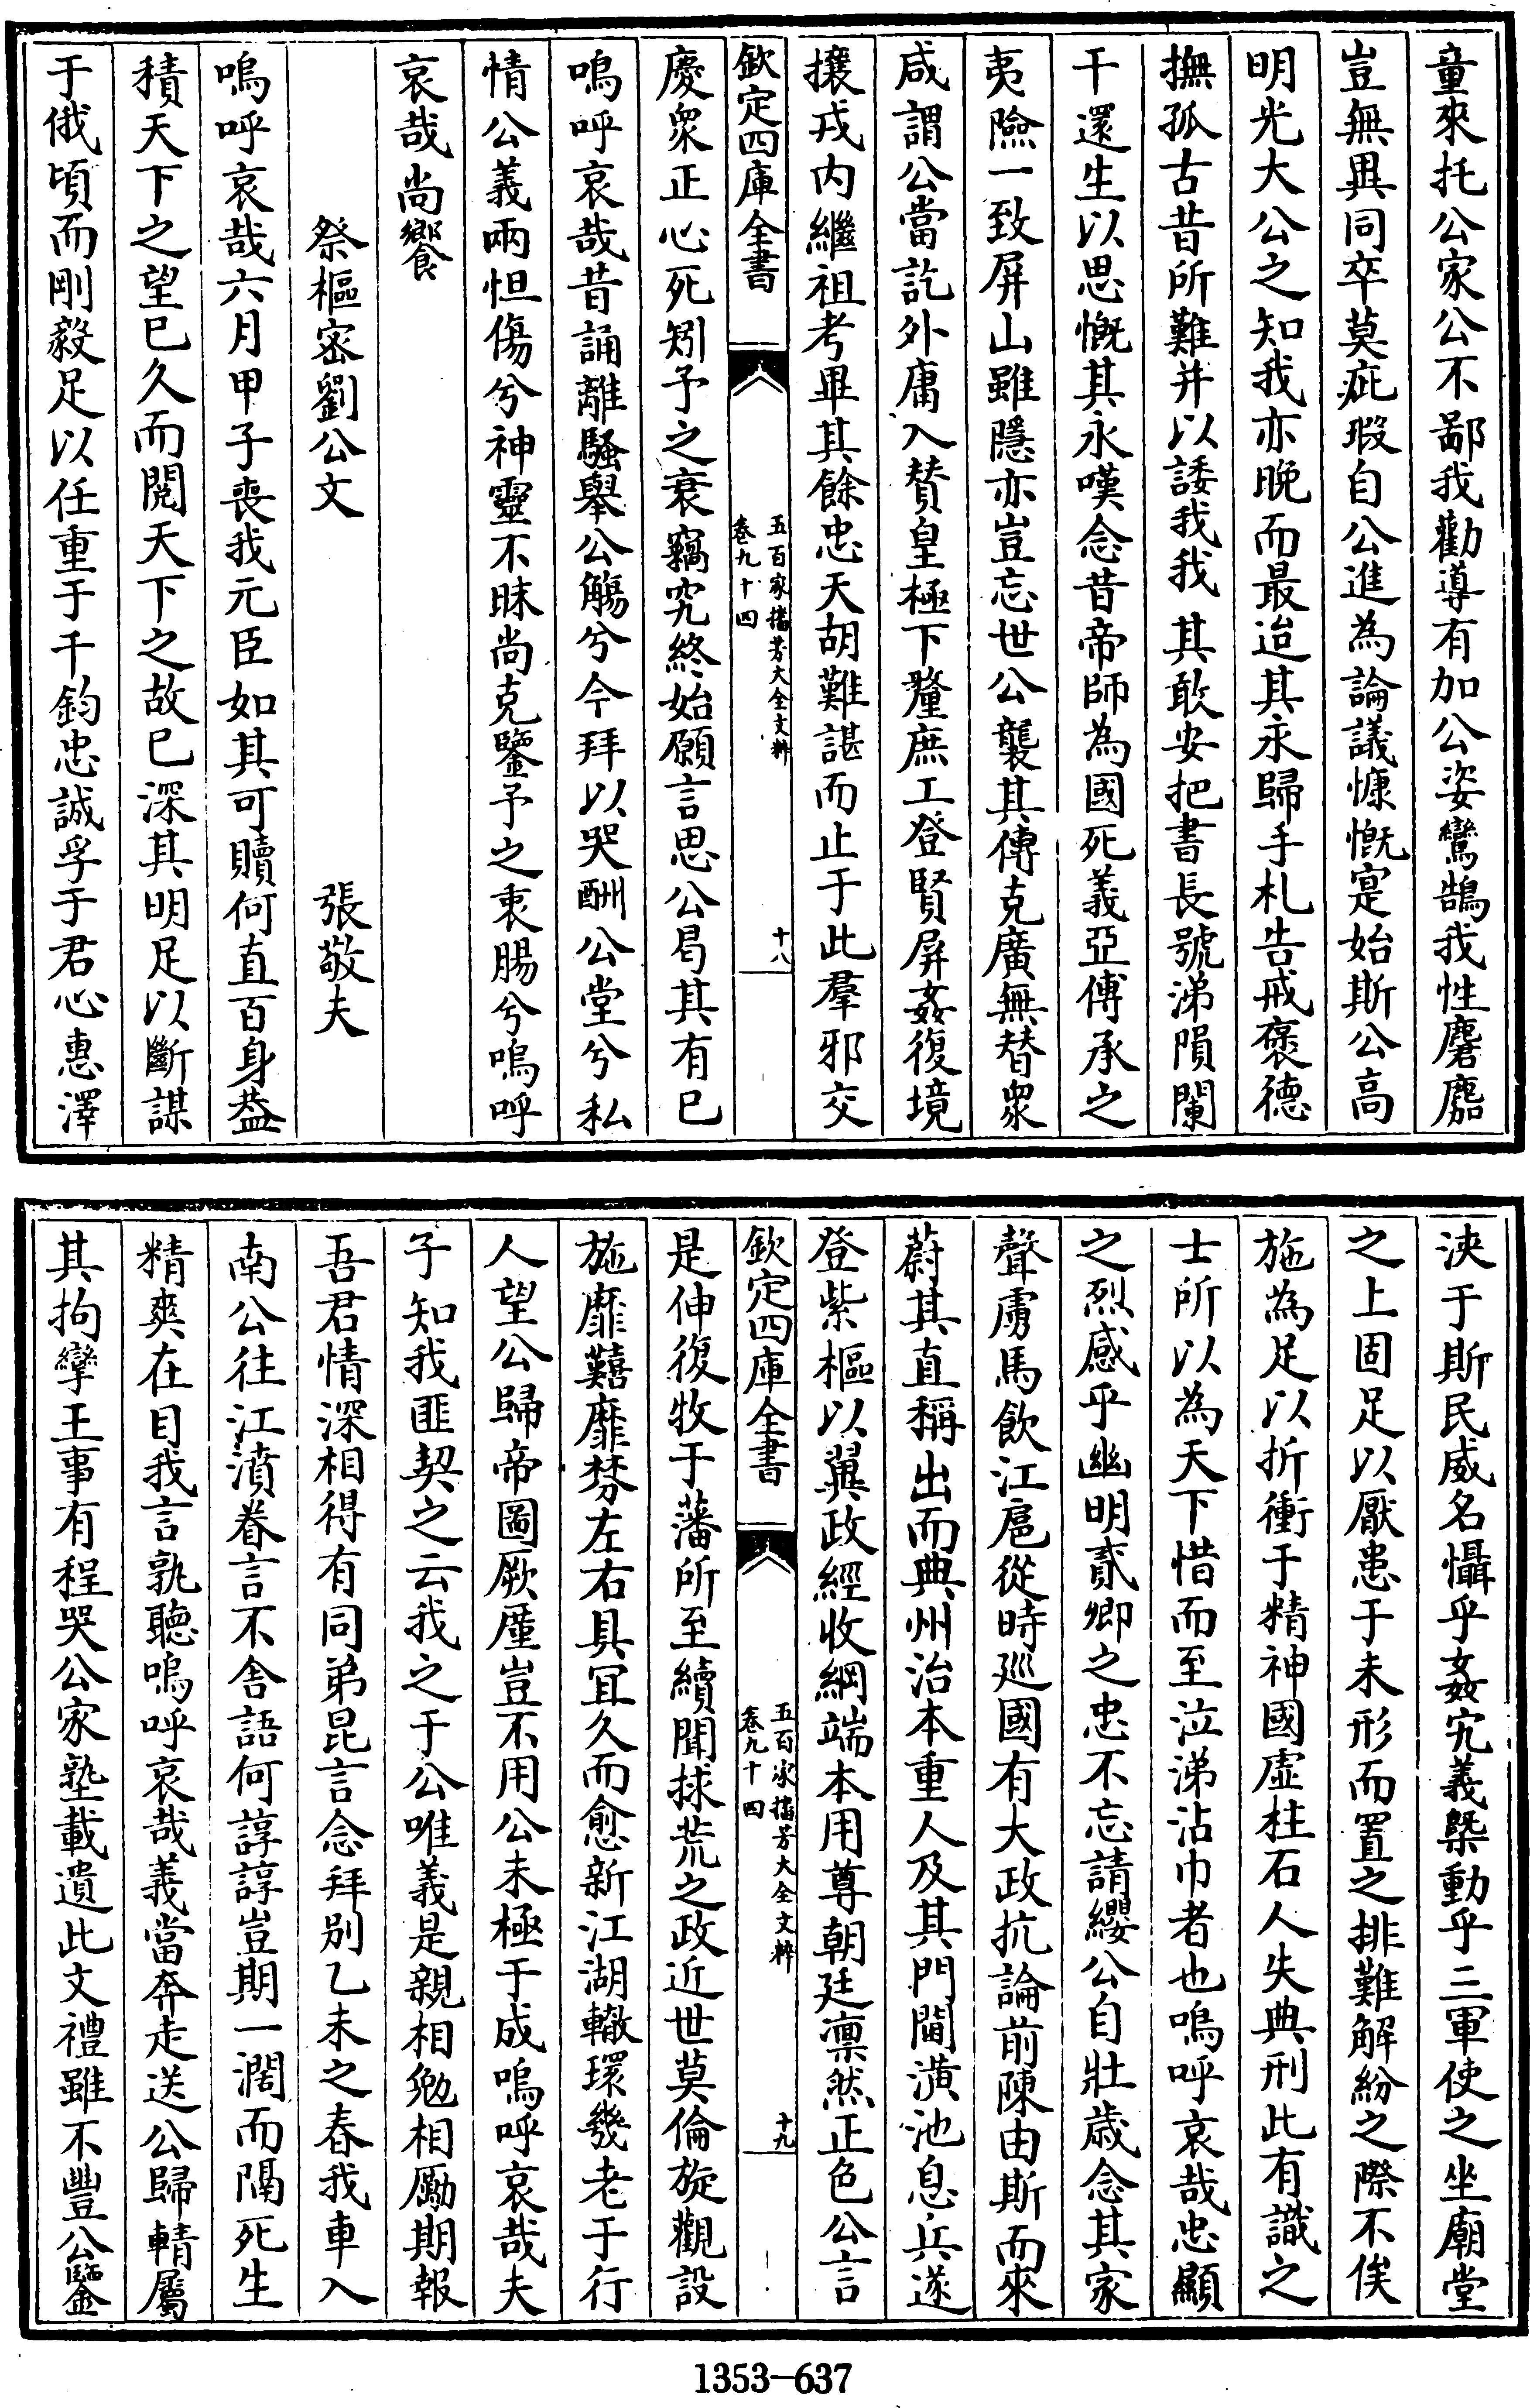 童來托公家公不鄙我勸導有加公姿鸞鵠我性麏麚
豈無異同卒莫疵瑕自公進為論議慷慨寔始斯公高
明光大公之知我亦晚而最迨其永歸手札告戒褒德
撫孤古昔所難并以諉我我其敢安把書長號涕隕闌
干還生以思慨其永嘆念昔帝師為國死義亞傅承之
夷險一致屏山雖隱亦豈忘世公襲其傳克廣無替衆
咸謂公當訖外庸入贊皇極下釐庶工登賢屏姦復境
攘戎内繼祖考畢其餘忠天胡難諶而止于此羣邪交
欽定四庫全書
五百家播芳大全文粹
卷九十四
十八
慶衆正心死矧予之衰竊究終始願言思公曷其有已
嗚呼哀哉昔誦離騷舉公觴兮今拜以哭酬公堂兮私
情公義兩怛傷兮神靈不昧尚克鑒予之衷腸兮嗚呼
哀哉尚饗
祭樞密劉公文
張敬夫
嗚呼哀哉六月甲子喪我元臣如其可贖何直百身葢
積天下之望已久而閱天下之故已深其明足以斷謀
于俄頃而剛毅足以任重于千鈞忠誠孚于君心惠澤
浹于斯民威名懾乎姦宄義槩動乎三軍使之坐廟堂
之上固足以厭患于未形而置之排難解紛之際不俟
施為足以折衝于精神國虛柱石人失典刑此有識之
士所以為天下惜而至泣涕沾巾者也嗚呼哀哉忠顯
之烈感乎幽明貳卿之忠不忘請纓公自壯歳念其家
聲虜馬飲江扈從時廵國有大政抗論前陳由斯而來
蔚其直稱出而典州治本重人及其門閫潢池息兵遂
登紫樞以翼政經收綱端本用尊朝廷凛然正色公言
欽定四庫全書
五百家播芳大全文粹
卷九十四
十九
是伸復牧于藩所至續聞捄荒之政近世莫倫旋觀設
施靡囏靡棼左右具宜久而愈新江湖轍環幾老于行
人望公歸帝圖厥厪豈不用公未極于成嗚呼哀哉夫
子知我匪契之云我之于公唯義是親相勉相勵期報
吾君情深相得有同弟昆言念拜别乙未之春我車入
南公往江濆眷言不舍語何諄諄豈期一濶而隔死生
精爽在目我言孰聽嗚呼哀哉義當奔走送公歸輤屬
其拘攣王事有程哭公家塾載遺此文禮雖不豐公鑒
1353-637